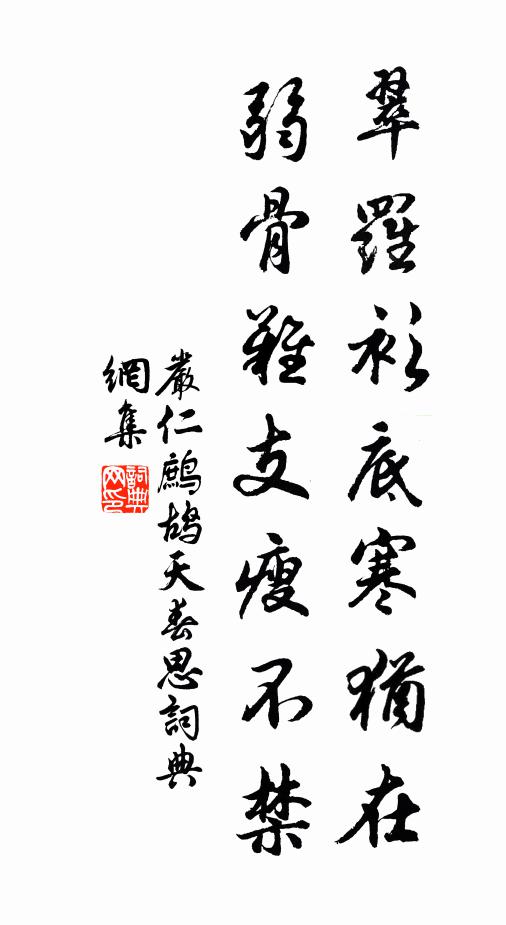 翠羅衫底寒猶在
弱骨難支瘦不禁
嚴仁鷓鴣天春思詞典
網集
詞典
网印